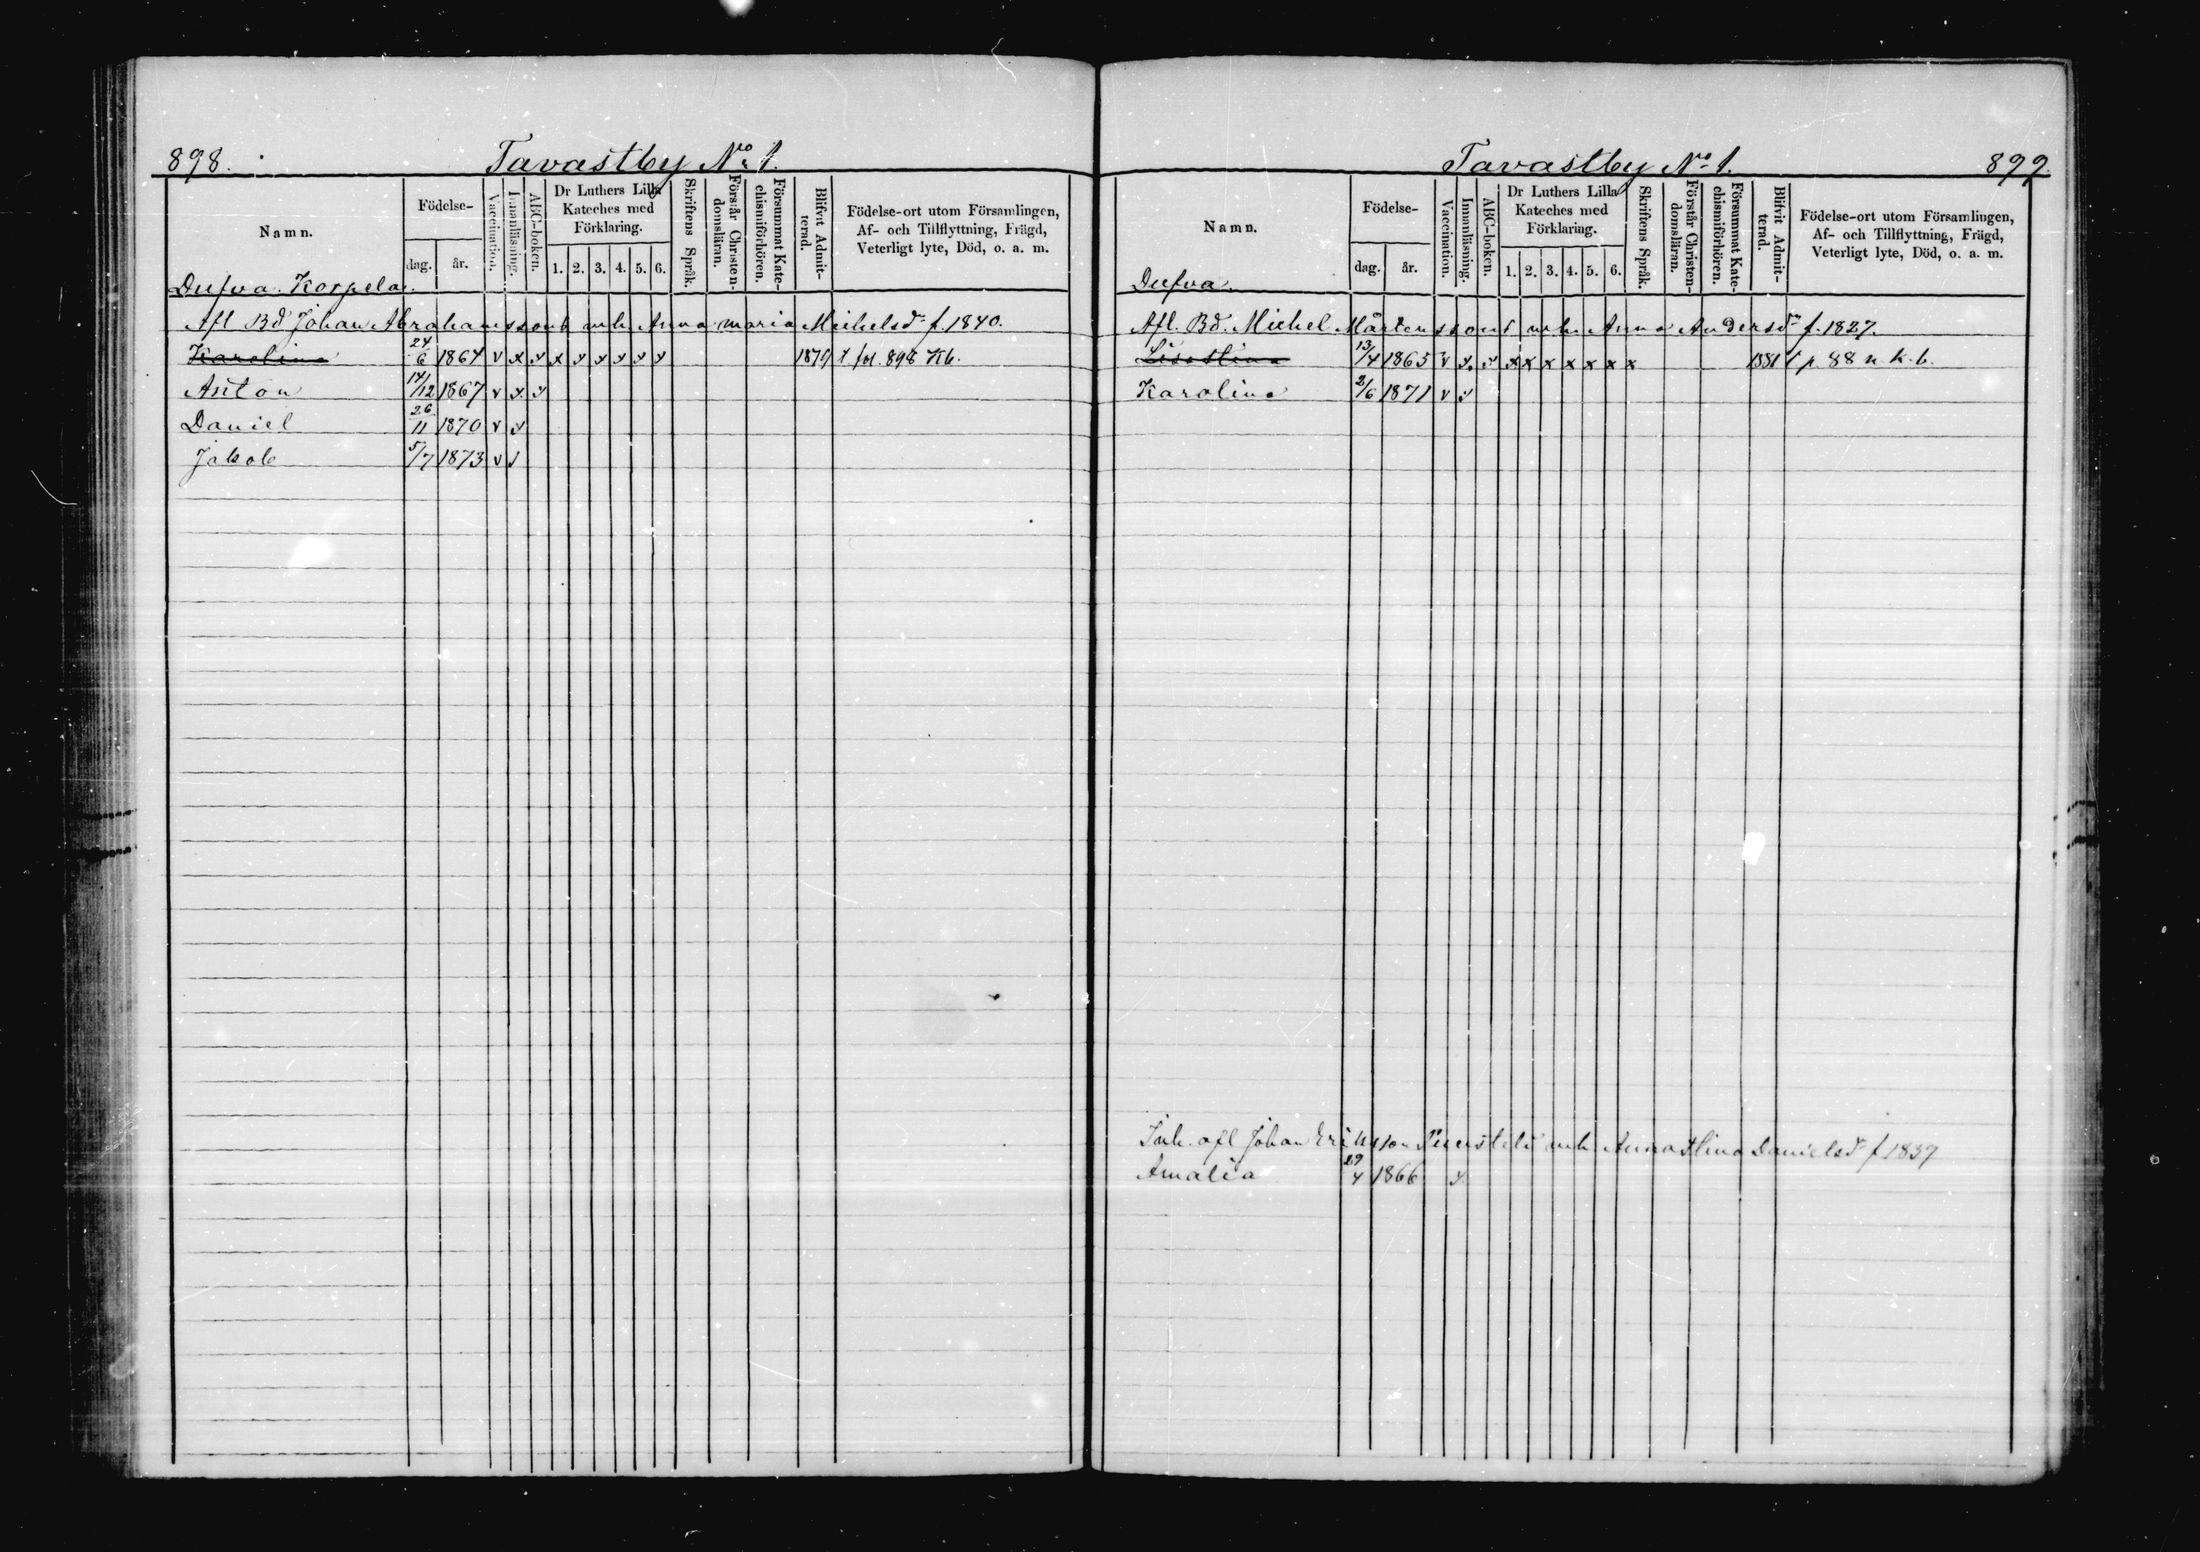 898.
Tavastby No 1.
Namn.
Födelse-
dag.
år.
Vaccination.
Innanläsning.
ABC-boken.
Dr Luthers Lilla
Kateches med
Förklaring.
1. 2. 3. 4. 5. 6.
Skriftens Språk.
Förstår Christen-
domsläran.
Försummat Kate-
chismiförhören.
Blifvit Admit-
terad.
Födelse-ort utom Församlingen,
Af- och Tillflyttning, Frägd,
Veterligt lyte, Död, o. a. m.
Dufva Korpela.
Afl Bd Johan Abrahamssons m h. Anna Maria Michelsdr f. 1840.
Karolina 24/6 1864 v x x x x x x x x 1879 t fol. 898 Kb.
Anton 14/12 1867 v x x
Daniel 26/11 1870 v x
Jakob 5/7 1873 v x
Tavastby No 1.
899.
Namn.
Födelse-
dag.
år.
Vaccination.
Innanläsning.
ABC-boken.
Dr Luthers Lilla
Kateches med
Förklaring.
1. 2. 3. 4. 5. 6.
Skriftens Språk.
Förstår Christen-
domsläran.
Försummat Kate-
chismiförhören.
Blifvit Admit-
terad.
Födelse-ort utom Församlingen,
Af- och Tillflyttning, Frägd,
Veterligt lyte, Död, o. a. m.
Dufva.
Afl. Bd. Michel Mårtenssons m h. Anna Andersdr f. 1827.
Lisastina 13/4 1865 v x x x x x x x x x 1881 t p 88 n k. b.
Karolina 2/6 1871 v x
Inh. afl Johan Eriksson m h. Annastina Danielsd f 1837
Amalia 29/4 1866 x